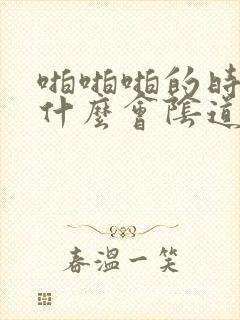 啪啪啪的時
什麼會陰道
春溫一笑